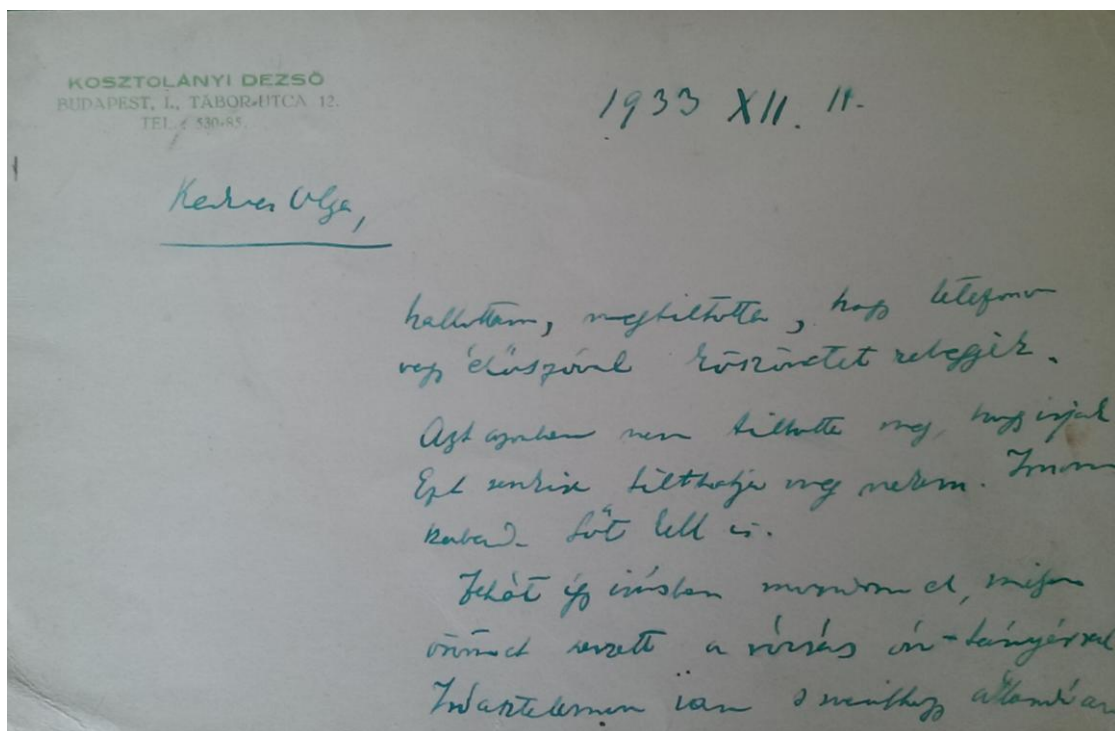 KOSZTOLÁNYI DEZSŐ
BUDAPEST, I., TÁBOR-UTCA 12.
TEL.: 530-85.
1933 XII. 11.
Kedves Olga,
hallottam, megtiltotta, hogy telefonon
vagy élőszóval köszönetet rebegjek.
Azt azonban nem tiltotta meg, hogy írjak
Ezt senkise tilthatja meg nekem. Irnom
szabad. Sőt kell is.
Tehát így írásban mondom el, milyen
örömet szerzett a rózsás ón-tányérral
Iróasztalomon van s minthogy állandóan